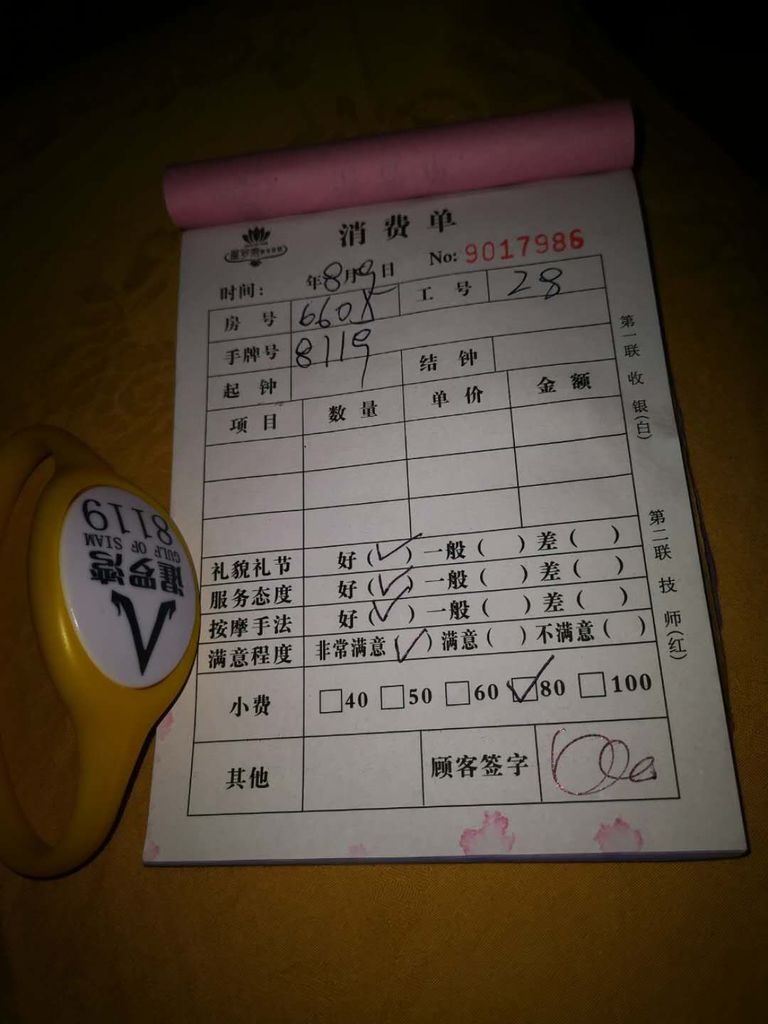 消费单
No: 9017986
时间: 年8月9日
房号 6605 工号 28
手牌号 8119
起钟 结钟
项目 数量 单价 金额
礼貌礼节 好(✓) 一般( ) 差( )
服务态度 好(✓) 一般( ) 差( )
按摩手法 好(✓) 一般( ) 差( )
满意程度 非常满意(✓) 满意( ) 不满意( )
小费 □40 □50 □60 ☑80 □100
其他 顾客签字
第一联 收银(白)
第二联 技师(红)
暹罗湾
GULF OF SIAM
8119